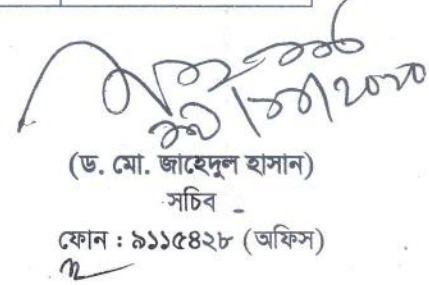 (ড. মো. জাহেদুল হাসান)
সচিব
ফোন : ৯১১৫৪২৮ (অফিস)